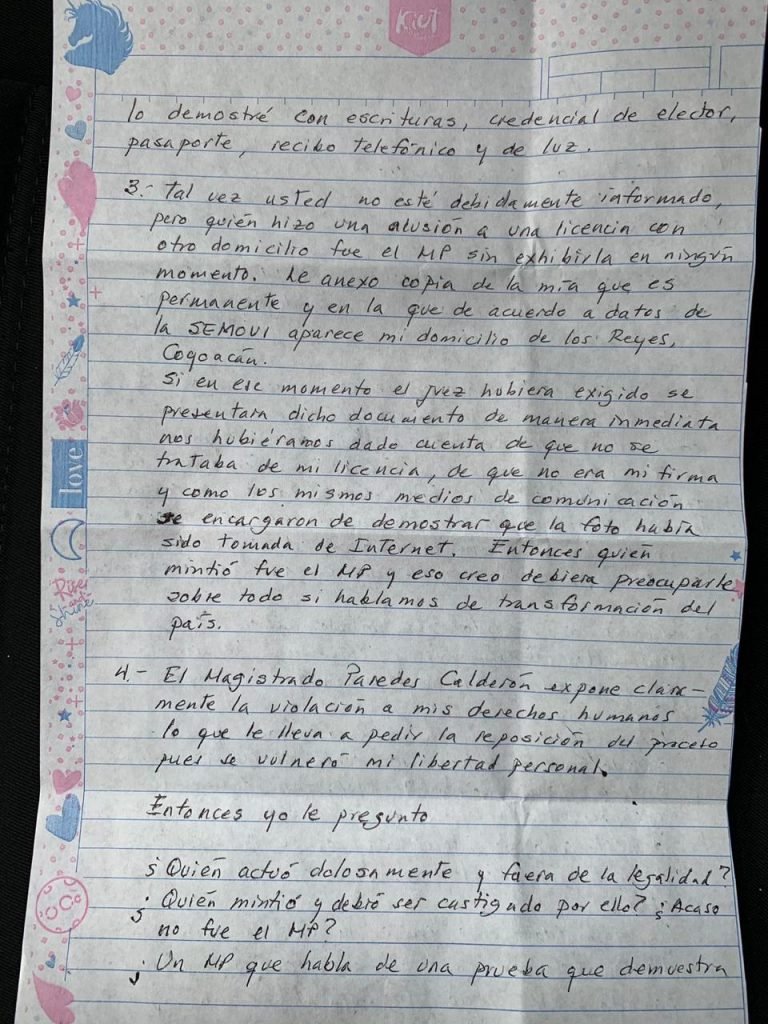 Kiut
lo demostré con escrituras, credencial de elector,
pasaporte, recibo telefónico y de luz.
3.- Tal vez usted no esté debidamente informado,
pero quién hizo una alusión a una licencia con
otro domicilio fue el MP sin exhibirla en ningún
momento. Le anexo copia de la mía que es
permanente y en la que de acuerdo a datos de
la SEMOVI aparece mi domicilio de los Reyes,
Coyoacán.
Si en ese momento el juez hubiera exigido se
presentara dicho documento de manera inmediata
nos hubiéramos dado cuenta de que no se
trataba de mi licencia, de que no era mi firma
y como los mismos medios de comunicación
se encargaron de demostrar que la foto había
sido tomada de Internet. Entonces quién
mintió fue el MP y eso creo debiera preocuparle
sobre todo si hablamos de transformación del
país.
4.- El Magistrado Paredes Calderón expone clara-
mente la violación a mis derechos humanos
lo que le lleva a pedir la reposición del proceso
pues se vulneró mi libertad personal.
Entonces yo le pregunto
¿Quién actuó dolosamente y fuera de la legalidad?
¿Quién mintió y debió ser castigado por ello? ¿Acaso
no fue el MP?
¿Un MP que habla de una prueba que demuestra
love
Rise
& shine